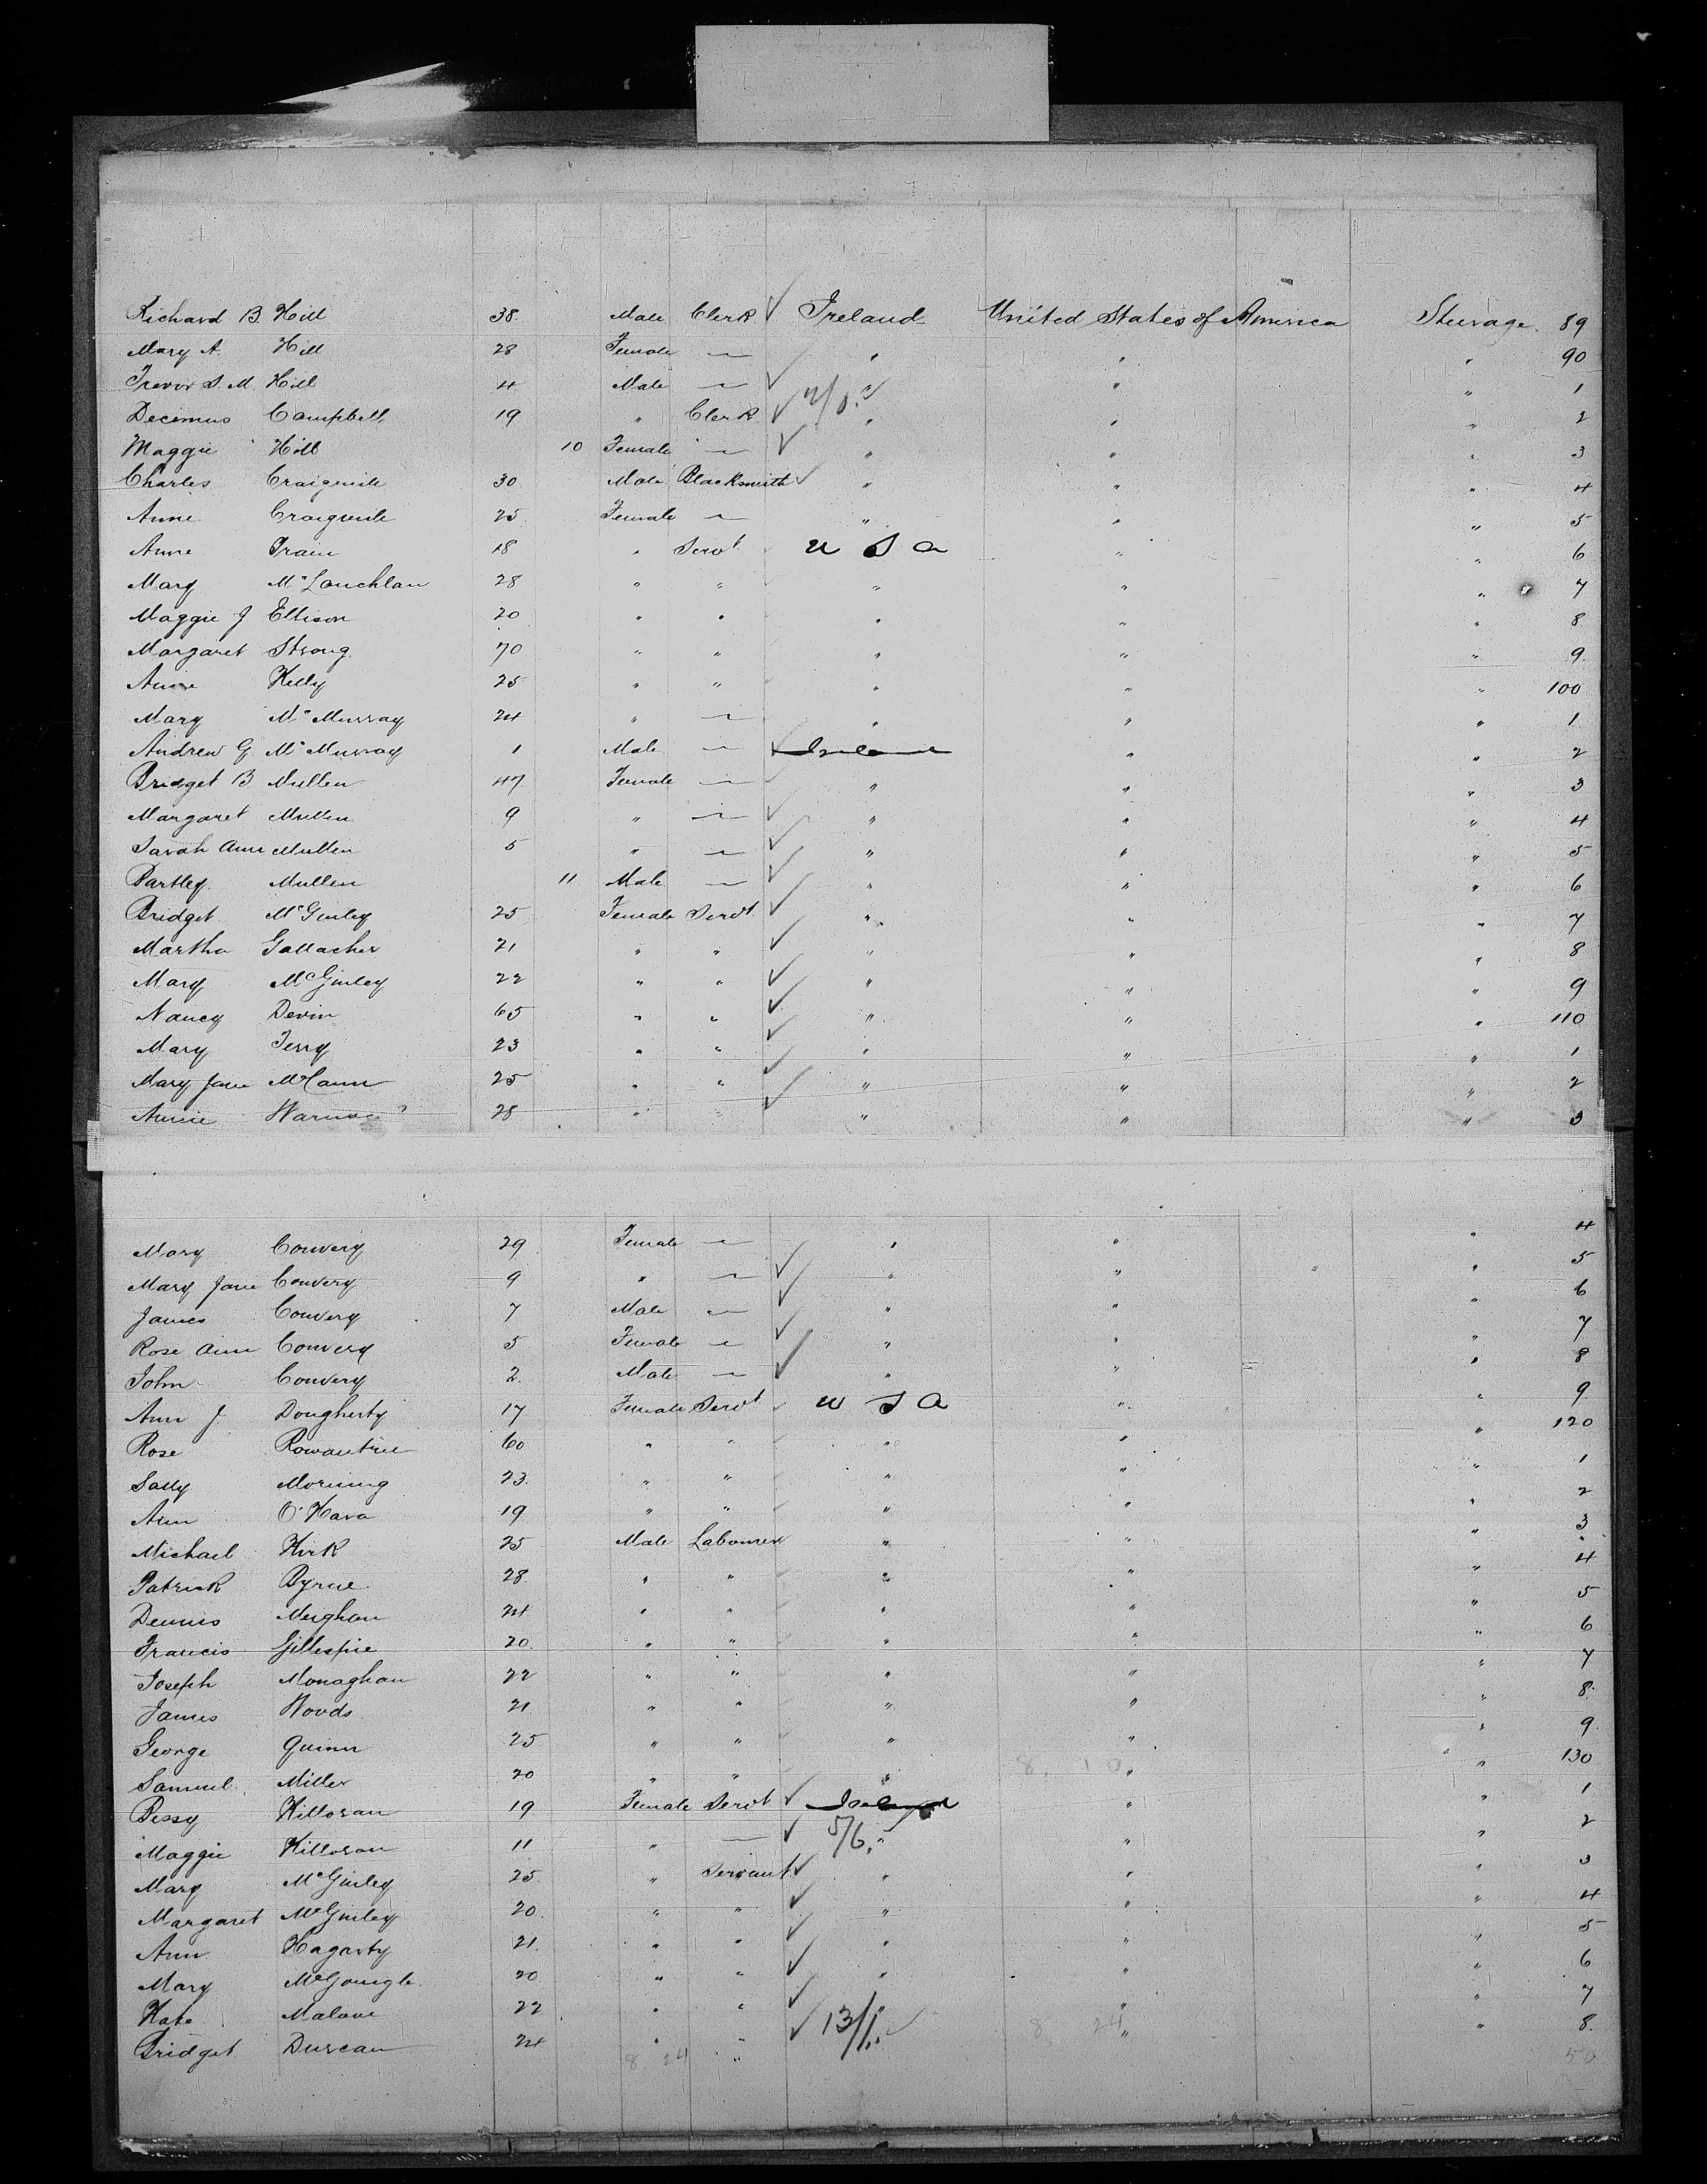 Richard B. Hill 38 Male Clerk ✓ Ireland United States of America Steerage 89
Mary A. Hill 28 Female — ✓ " " " 90
Trevor S. M. Hill 4 Male — ✓ " " " 1
Decemus Campbell 19 " Clerk ✓ " " " 2
Maggie Hill 10 Female — ✓ " " " 3
Charles 30 Male Blacksmith ✓ " " " 4
Anne 25 Female — " " " 5
Anne Train 18 " Servt U S A " " 6
Mary McLauchlan 28 " " " " " 7
Maggie J Ellison 20 " " " " " 8
Margaret Strong 70 " " " " " 9
Anne Kelly 25 " " " " " 100
Mary McMurray 24 " — " " " 1
Andrew G. McMurray 1 Male — ✓ Ireland " " 2
Bridget B Mullen 47 Female — ✓ " " " 3
Margaret Mullen 9 " — ✓ " " " 4
Sarah Ann Mullen 5 " — ✓ " " " 5
Bartley Mullen 11 Male — ✓ " " " 6
Bridget McGinley 25 Female Servt ✓ " " " 7
Martha Gallacher 21 " " ✓ " " " 8
Mary McGinley 22 " " ✓ " " " 9
Nancy Devin 65 " " ✓ " " " 110
Mary Terry 23 " " ✓ " " " 1
Mary Jane McCann 25 " " ✓ " " " 2
Annie 28 " " ✓ " " " 3
Mary Convery 29 Female — " " " 4
Mary Jane Convery 9 " — ✓ " " " 5
James Convery 7 Male — ✓ " " " 6
Rose Ann Convery 5 Female — ✓ " " " 7
John Convery 2 Male — ✓ " " " 8
Ann J Dougherty 17 Female Servt ✓ U S A " " 9
Rose Rowantree 60 " " " " " 120
Sally Morning 23 " " " " " 1
Ann O'Hara 19 " " " " " 2
Michael Kirk 25 Male Labourer " " " 3
Patrick Byrne 28 " " " " " 4
Dennis Meighan 24 " " " " " 5
Francis Gillespie 20 " " " " " 6
Joseph Monaghan 22 " " " " " 7
James Woods 21 " " " " " 8
George Quinn 25 " " " " " 9
Samuel Miller 20 " " " 8. 10 " " 130
Bessy Killoran 19 Female Servt ✓ Ireland " " 1
Maggie Killoran 11 " — ✓ 5/6 " " " 2
Mary McGinley 25 " Servant ✓ " " " 3
Margaret McGinley 20 " " ✓ " " " 4
Ann Hagarty 21 " " ✓ " " " 5
Mary McGonigle 20 " " ✓ " " " 6
Kate Malone 22 " " ✓ " " " 7
Bridget Duncan 24 " " ✓ 13/1 " " 8
8. 24 8 24 50